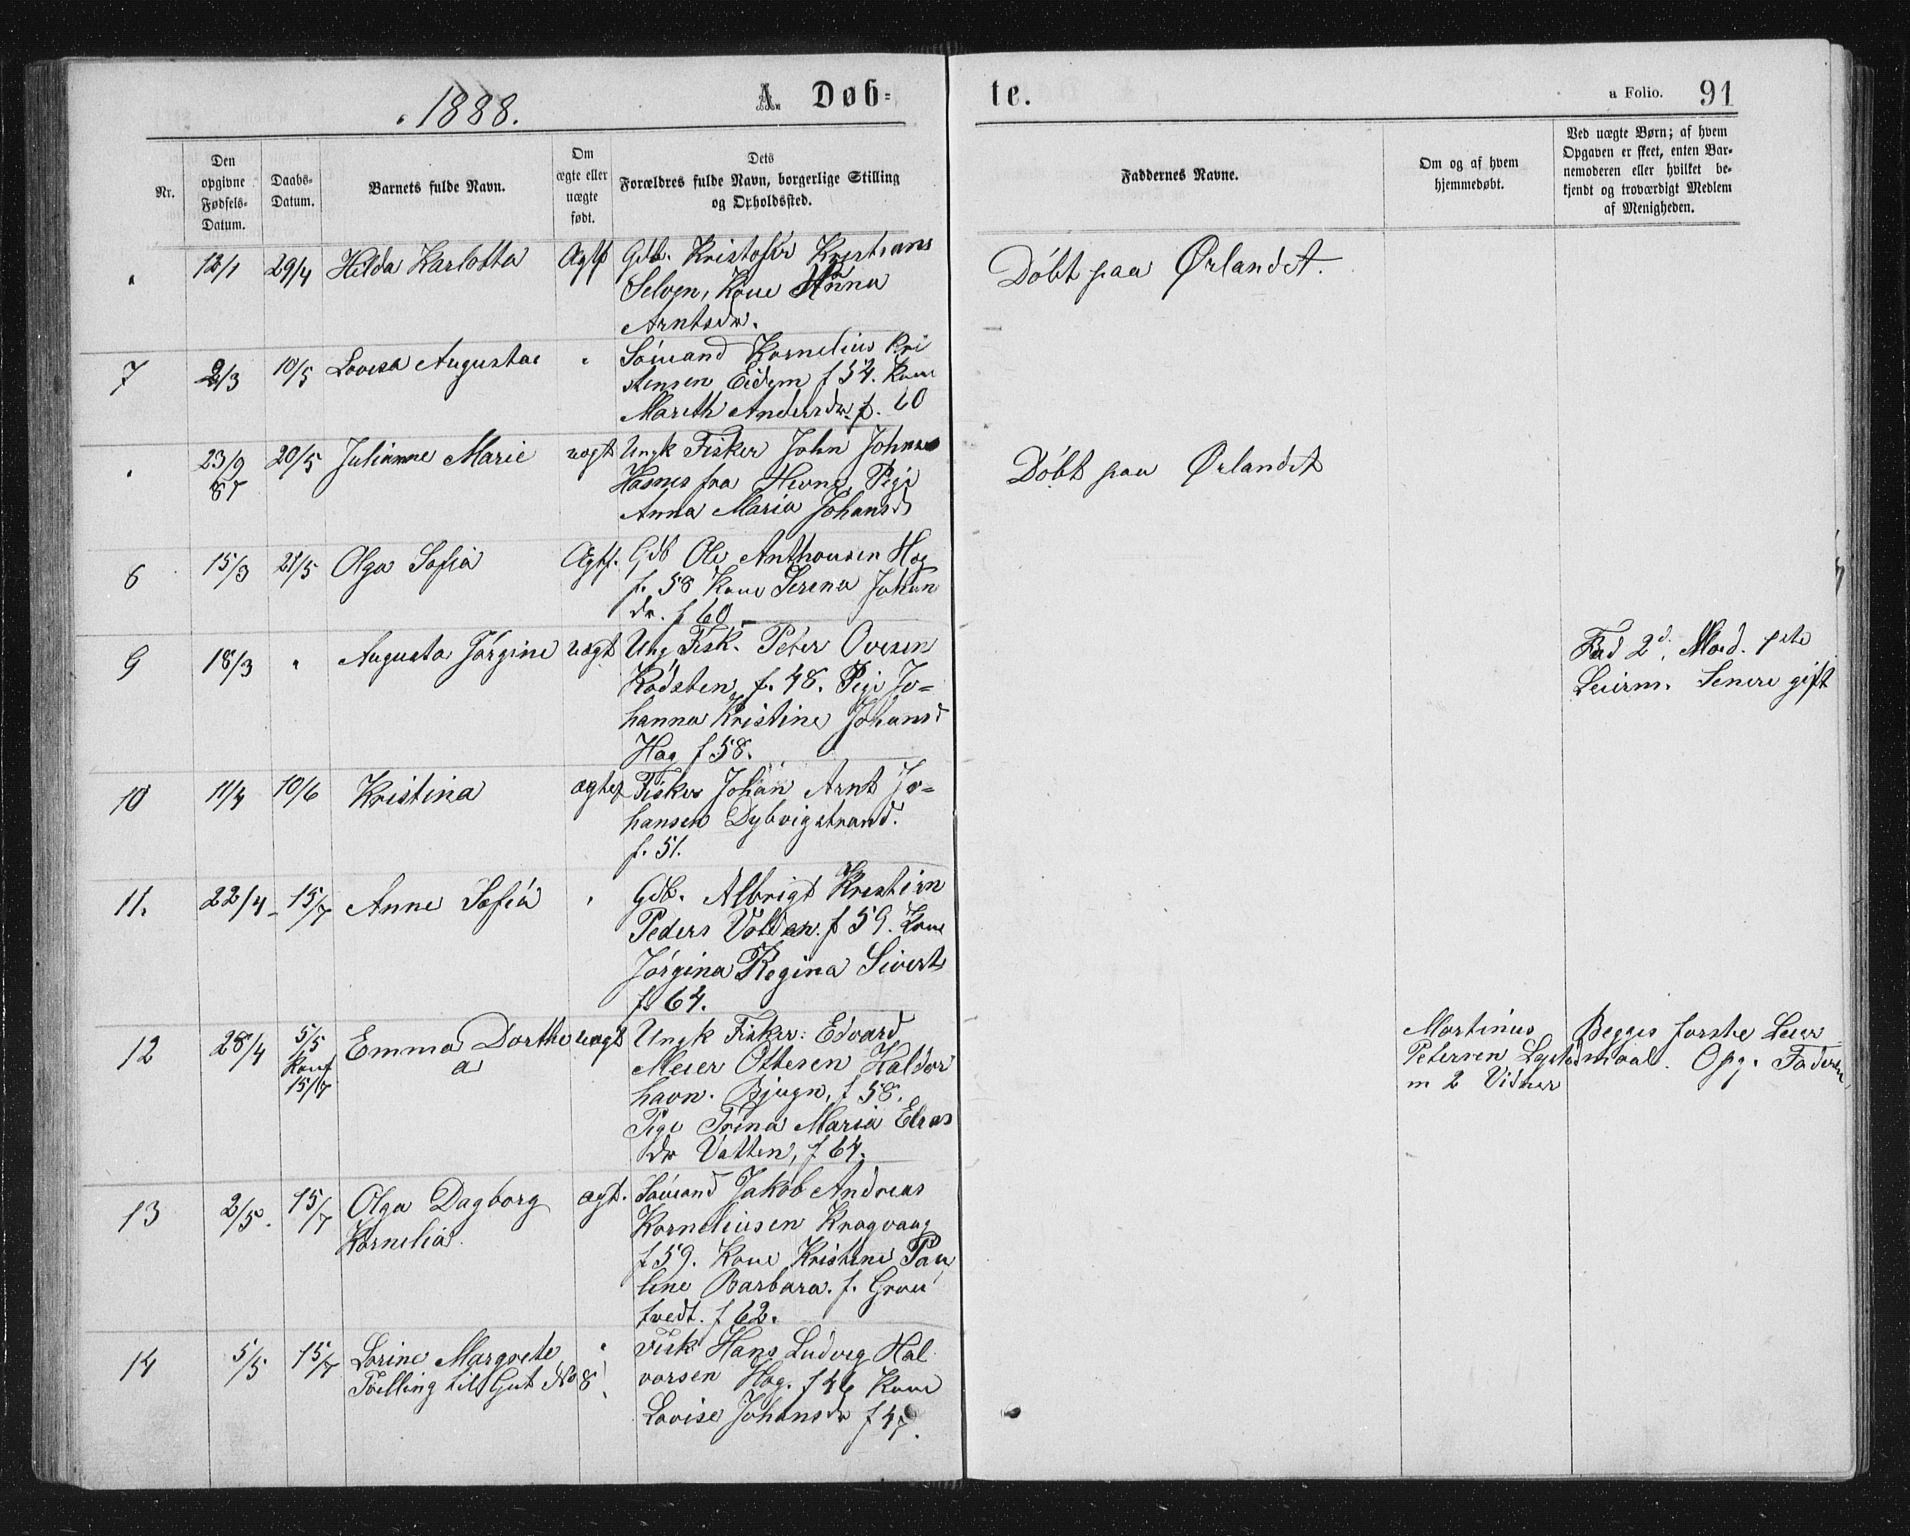 1888.
A. Døb-
te.
a Folio. 91
Nr.
Den opgivne Fødsels-Datum.
Daabs-Datum.
Barnets fulde Navn.
Om ægte eller uægte født.
Dets Forældres fulde Navn, borgerlige Stilling og Opholdssted.
Faddernes Navne.
Om og af hvem hjemmedøbt.
Ved uægte Børn; af hvem Opgaven er skeet, enten Barnemoderen eller hvilket bekjendt og troværdigt Medlem af Menigheden.
" 12/1 29/4 Hilda Karlotta Ægtf Gdb. Kristofer Kristians
Selven, Kone Anna
Arntsdr.
Døbt paa Ørlandet.
7 2/3 10/5 Lovisa Augusta " Sömand Kornelius Kri
stensen Eidem f 54. Kone
Mareth Andersdr. f. 60
" 23/9 87 20/5 Julianne Marie uægt Ungk Fisker John Johns
Hasnes fra Hevne, Pige
Anna Maria Johansd
Døbt paa Ørlandet
6 15/3 21/5 Olga Sofia Ægtf. Gdb Ole Anthonsen Hog
f. 58 Kone Serena Johan
dr. f 60
9 18/3 " Augusta Jørgine uægt Ung Fisk. Peter Ovesen
Rödsten f. 48. Pige Jo=
hanna Kristine Johansd
Hag f 58.
Fad 2d. Mod. 1ste
Leierm. Senere gift
10 11/4 10/6 Kristina ægtef Fisker Johan Arnt Jo=
hansen Dybvigstrand.
f. 51.
11. 22/4 15/7 Anne Sofia " Gdb. Albrigt Kristian
Peders Volden. f 59. Kone
Jörgina Regina Siverts
f. 64.
12 28/4 5/5 Konf 15/7 Emma Dorthe
a
uægt Ungk Fisker: Edvard
Meier Ottesen Valdør
havn. Bjugn, f 58.
Pige Trina Maria Elias
dr Vatten, f 64.
Martinus
Petersen
m 2 Vidner
Begges forste Leier
maal. Opg. Faderen
13 2/5. 15/7 Olga Dagborg
Kornelia
ægt. Sömand Jakob Andreas
Korneliusen Kragvaag
f 59. Kone Kristine Pau
line Barbara. f. Grøn
tvedt. f 62.
14 5/5 15/7 Lorine Margrete
Tvilling til Gut No 8
" Fisk Hans Ludvig Hal
vorsen Hog. f 46 Kone
Lovise Johansdr f 47.